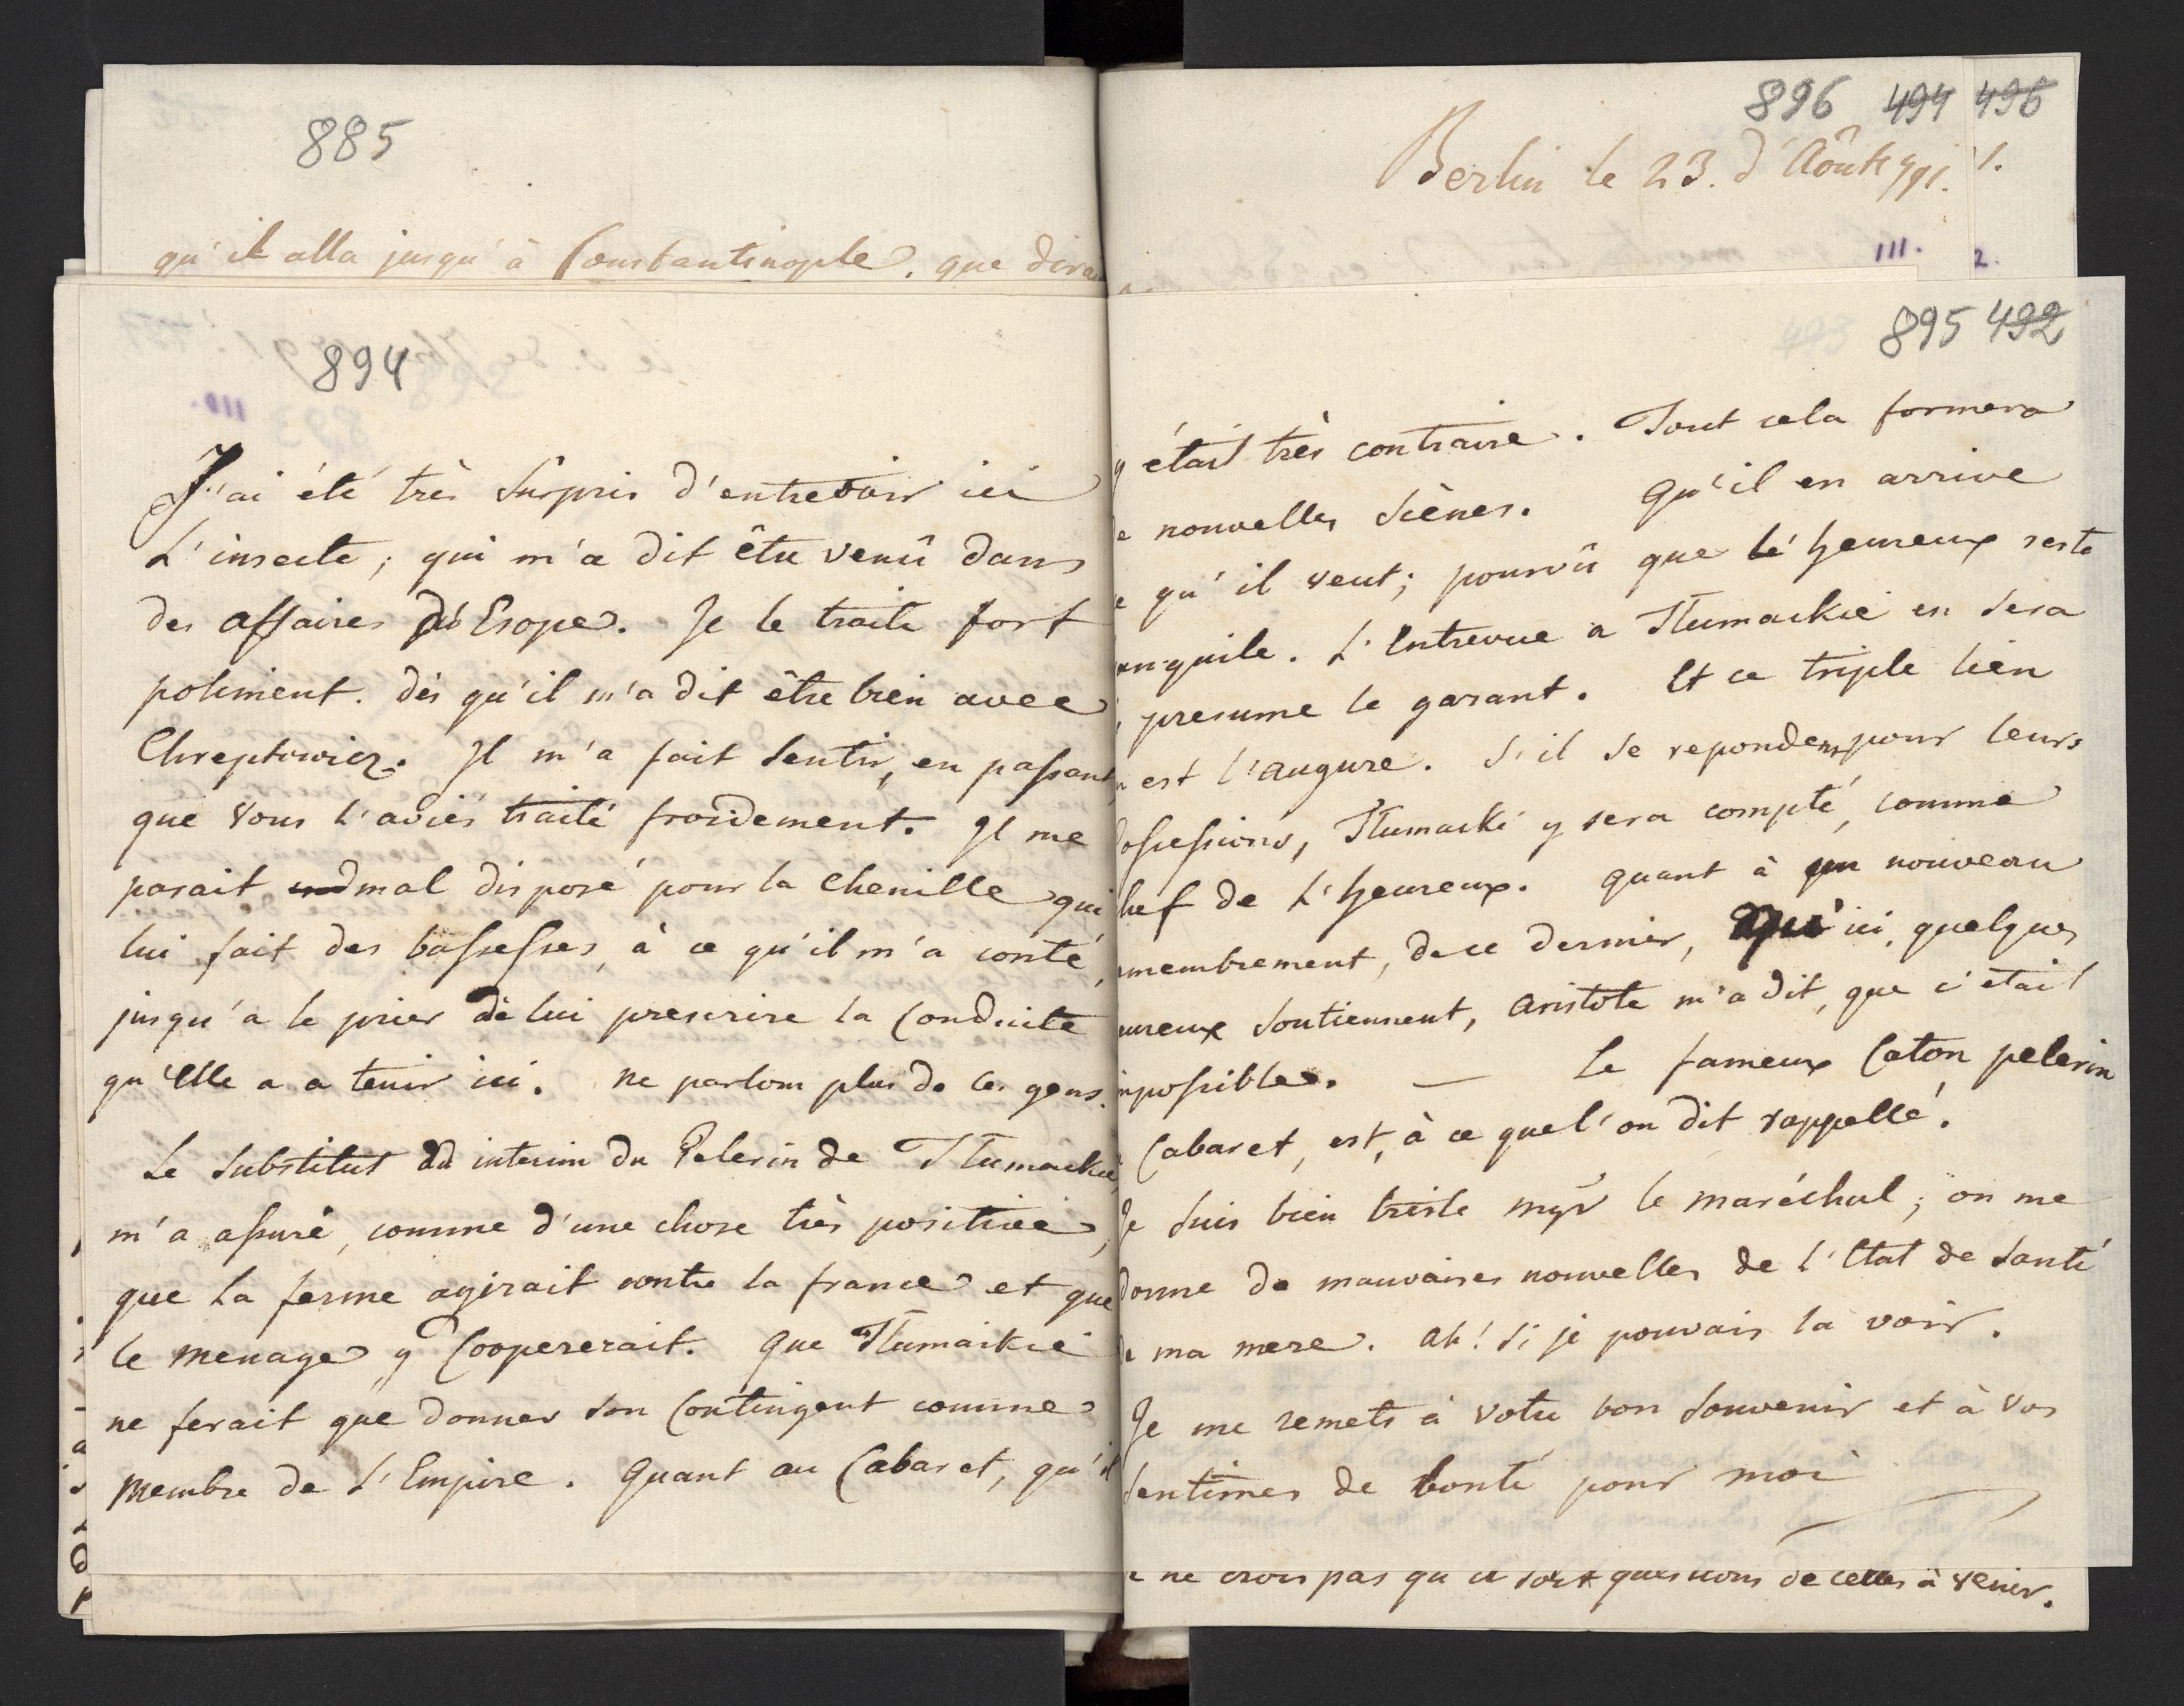 885
qu'il alla jusqu'à Constantinople. que
894
J'ai été très surpris d'entrevoir ici
L'insecte; qui m'a dit être venû dans
des affaires d'Esope. Je le traite fort
poliment. dès qu'il m'a dit être bien avec
Chreptowicz. Il m'a fait sentir, en passant,
que vous l'aviés traité froidement. Il me
parait mal disposé pour la chenille qui
lui fait des bassesses, à ce qu'il m'a conté,
jusqu'a le prier de lui prescrire la Conduite
qu'Elle a a tenir ici. ne parlons plus de ces gens.
Le Substitut ad interim du Pelerin de Tlumackie,
m'a assuré, comme d'une chose très positive,
que la ferme agirait contre la france et que
le menage y Coopererait. Que Tlumaikie
ne ferait que donner son Contingent comme
Membre de L'Empire. Quant au Cabaret, qu'il
896 494 496
Berlin le 23. d'Aôut 791. 1.
III. 2.
895 492
y était très contraire. Tout cela formera
nouvelles scènes. Qu'il en arrive
qu'il veut; pourvû que l'heureux reste
anquile. L'Entrevue a Tlumackie en sera
presume le garant. Et ce triple lien
est l'augure. S'il se repondent pour leurs
ossessions, Tlumacki y sera compté, comme
hef de L'heureux. quant à un nouveau
membrement, de ce dernier, qu'ici, quelques
ureux soutiennent, aristote m'a dit, que c'etait
mpossible. — Le fameux Caton pelerin
Cabaret, est, à ce que l'on dit rappellé.
Je suis bien triste mgr le maréchal; on me
donne de mauvaises nouvelles de l'Etat de santé
ma mere. ah! si je pouvais la voir.
Je me remets à votre bon souvenir et à vos
sentimes de bonté pour moi
ne crois pas qu'il soit questions de celles à venir.